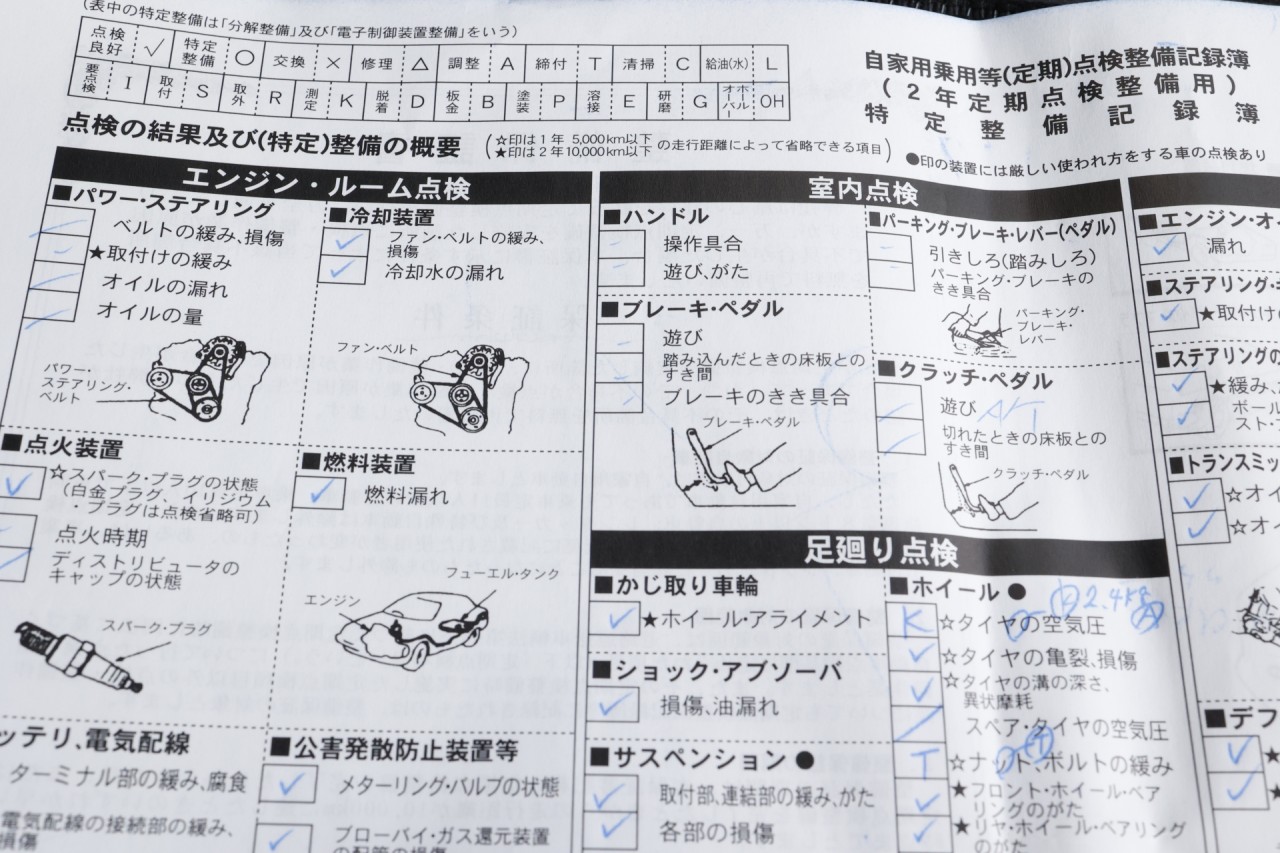 (表中の特定整備は「分解整備」及び「電子制御装置整備」をいう)
点検良好 ✓ 特定整備 ○ 交換 × 修理 △ 調整 A 締付 T 清掃 C 給油(水) L
要点検 I 取付 S 取外 R 測定 K 脱着 D 板金 B 塗装 P 溶接 E 研磨 G オーバーホール OH
自家用乗用等(定期)点検整備記録簿
(2年定期点検整備用)
特定整備記録簿
点検の結果及び(特定)整備の概要
(☆印は1年 5,000km以下
★印は2年10,000km以下 の走行距離によって省略できる項目)
●印の装置には厳しい使われ方をする車の点検あり
エンジン・ルーム点検
■パワー・ステアリング
ベルトの緩み、損傷
★取付けの緩み
オイルの漏れ
オイルの量
パワー・
ステアリング・
ベルト
■冷却装置
✓ ファン・ベルトの緩み、
損傷
✓ 冷却水の漏れ
ファン・ベルト
■点火装置
✓ ☆スパーク・プラグの状態
(白金プラグ、イリジウム
プラグは点検省略可)
点火時期
ディストリビュータの
キャップの状態
スパーク・プラグ
■燃料装置
✓ 燃料漏れ
フューエル・タンク
エンジン
ッテリ、電気配線
ターミナル部の緩み、腐食
電気配線の接続部の緩み、
損傷
■公害発散防止装置等
✓ メターリング・バルブの状態
✓ ブローバイ・ガス還元装置
の配管の損傷
室内点検
■ハンドル
操作具合
遊び、がた
■ブレーキ・ペダル
遊び
踏み込んだときの床板との
すき間
ブレーキのきき具合
ブレーキ・ペダル
■パーキング・ブレーキ・レバー(ペダル)
引きしろ(踏みしろ)
パーキング・ブレーキの
きき具合
パーキング・
ブレーキ・
レバー
■クラッチ・ペダル
遊び A/T
切れたときの床板との
すき間
クラッチ・ペダル
足廻り点検
■かじ取り車輪
✓ ★ホイール・アライメント
■ショック・アブソーバ
✓ 損傷、油漏れ
■サスペンション ●
✓ 取付部、連結部の緩み、がた
✓ 各部の損傷
■ホイール ●
K ☆タイヤの空気圧 2.4
✓ ☆タイヤの亀裂、損傷
✓ ☆タイヤの溝の深さ、
異状摩耗
スペア・タイヤの空気圧
T ☆ナット・ボルトの緩み
✓ ★フロント・ホイール・ベア
リングのがた
✓ ★リヤ・ホイール・ベアリング
のがた
■エンジン・オ
✓ 漏れ
■ステアリング・ギ
✓ ★取付けの
■ステアリングの
✓ ★緩み、
✓ ボール
スト・
■トランスミッ
✓ ☆オイ
✓ ☆オイ
■デフ
✓ ★
✓ ★